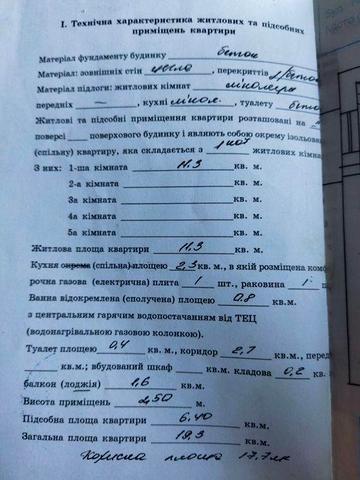 І. Технічна характеристика житлових та підсобних
приміщень квартири
Матеріал фундаменту будинку бетон
Матеріал: зовнішніх стін цегла, перекриттів з/бетон
Матеріал підлоги: житлових кімнат лінолеум
передніх —, кухні лінол., туалету бетон
Житлові та підсобні приміщення квартири розташовані на
поверсі поверхового будинку і являють собою окрему ізольова
(спільну) квартиру, яка складається з 1 житлових кімна
З них: 1-ша кімната 11.3 кв. м.
2-а кімната кв. м.
3а кімната кв. м.
4а кімната кв. м.
5а кімната кв. м.
Житлова площа квартири 11,3 кв. м.
Кухня окрема (спільна) площею 2,3 кв. м., в якій розміщена ком
рочна газова (електрична) плита 1 шт., раковина 1
Ванна відокремлена (сполучена) площею 0.8 кв.м.
з центральним гарячим водопостачанням від ТЕЦ
(водонагрівальною газовою колонкою).
Туалет площею 0,4 кв. м., коридор 2,7 кв. м., перед
кв.м.; вбудований шкаф кв.м. кладова 0,2 кв.
балкон (лоджія) 1,6 кв.м.
Висота приміщень 2,50 м.
Підсобна площа квартири 6,40 кв.м.
Загальна площа квартири 19,3 кв.м.
Корисна площа 17,7